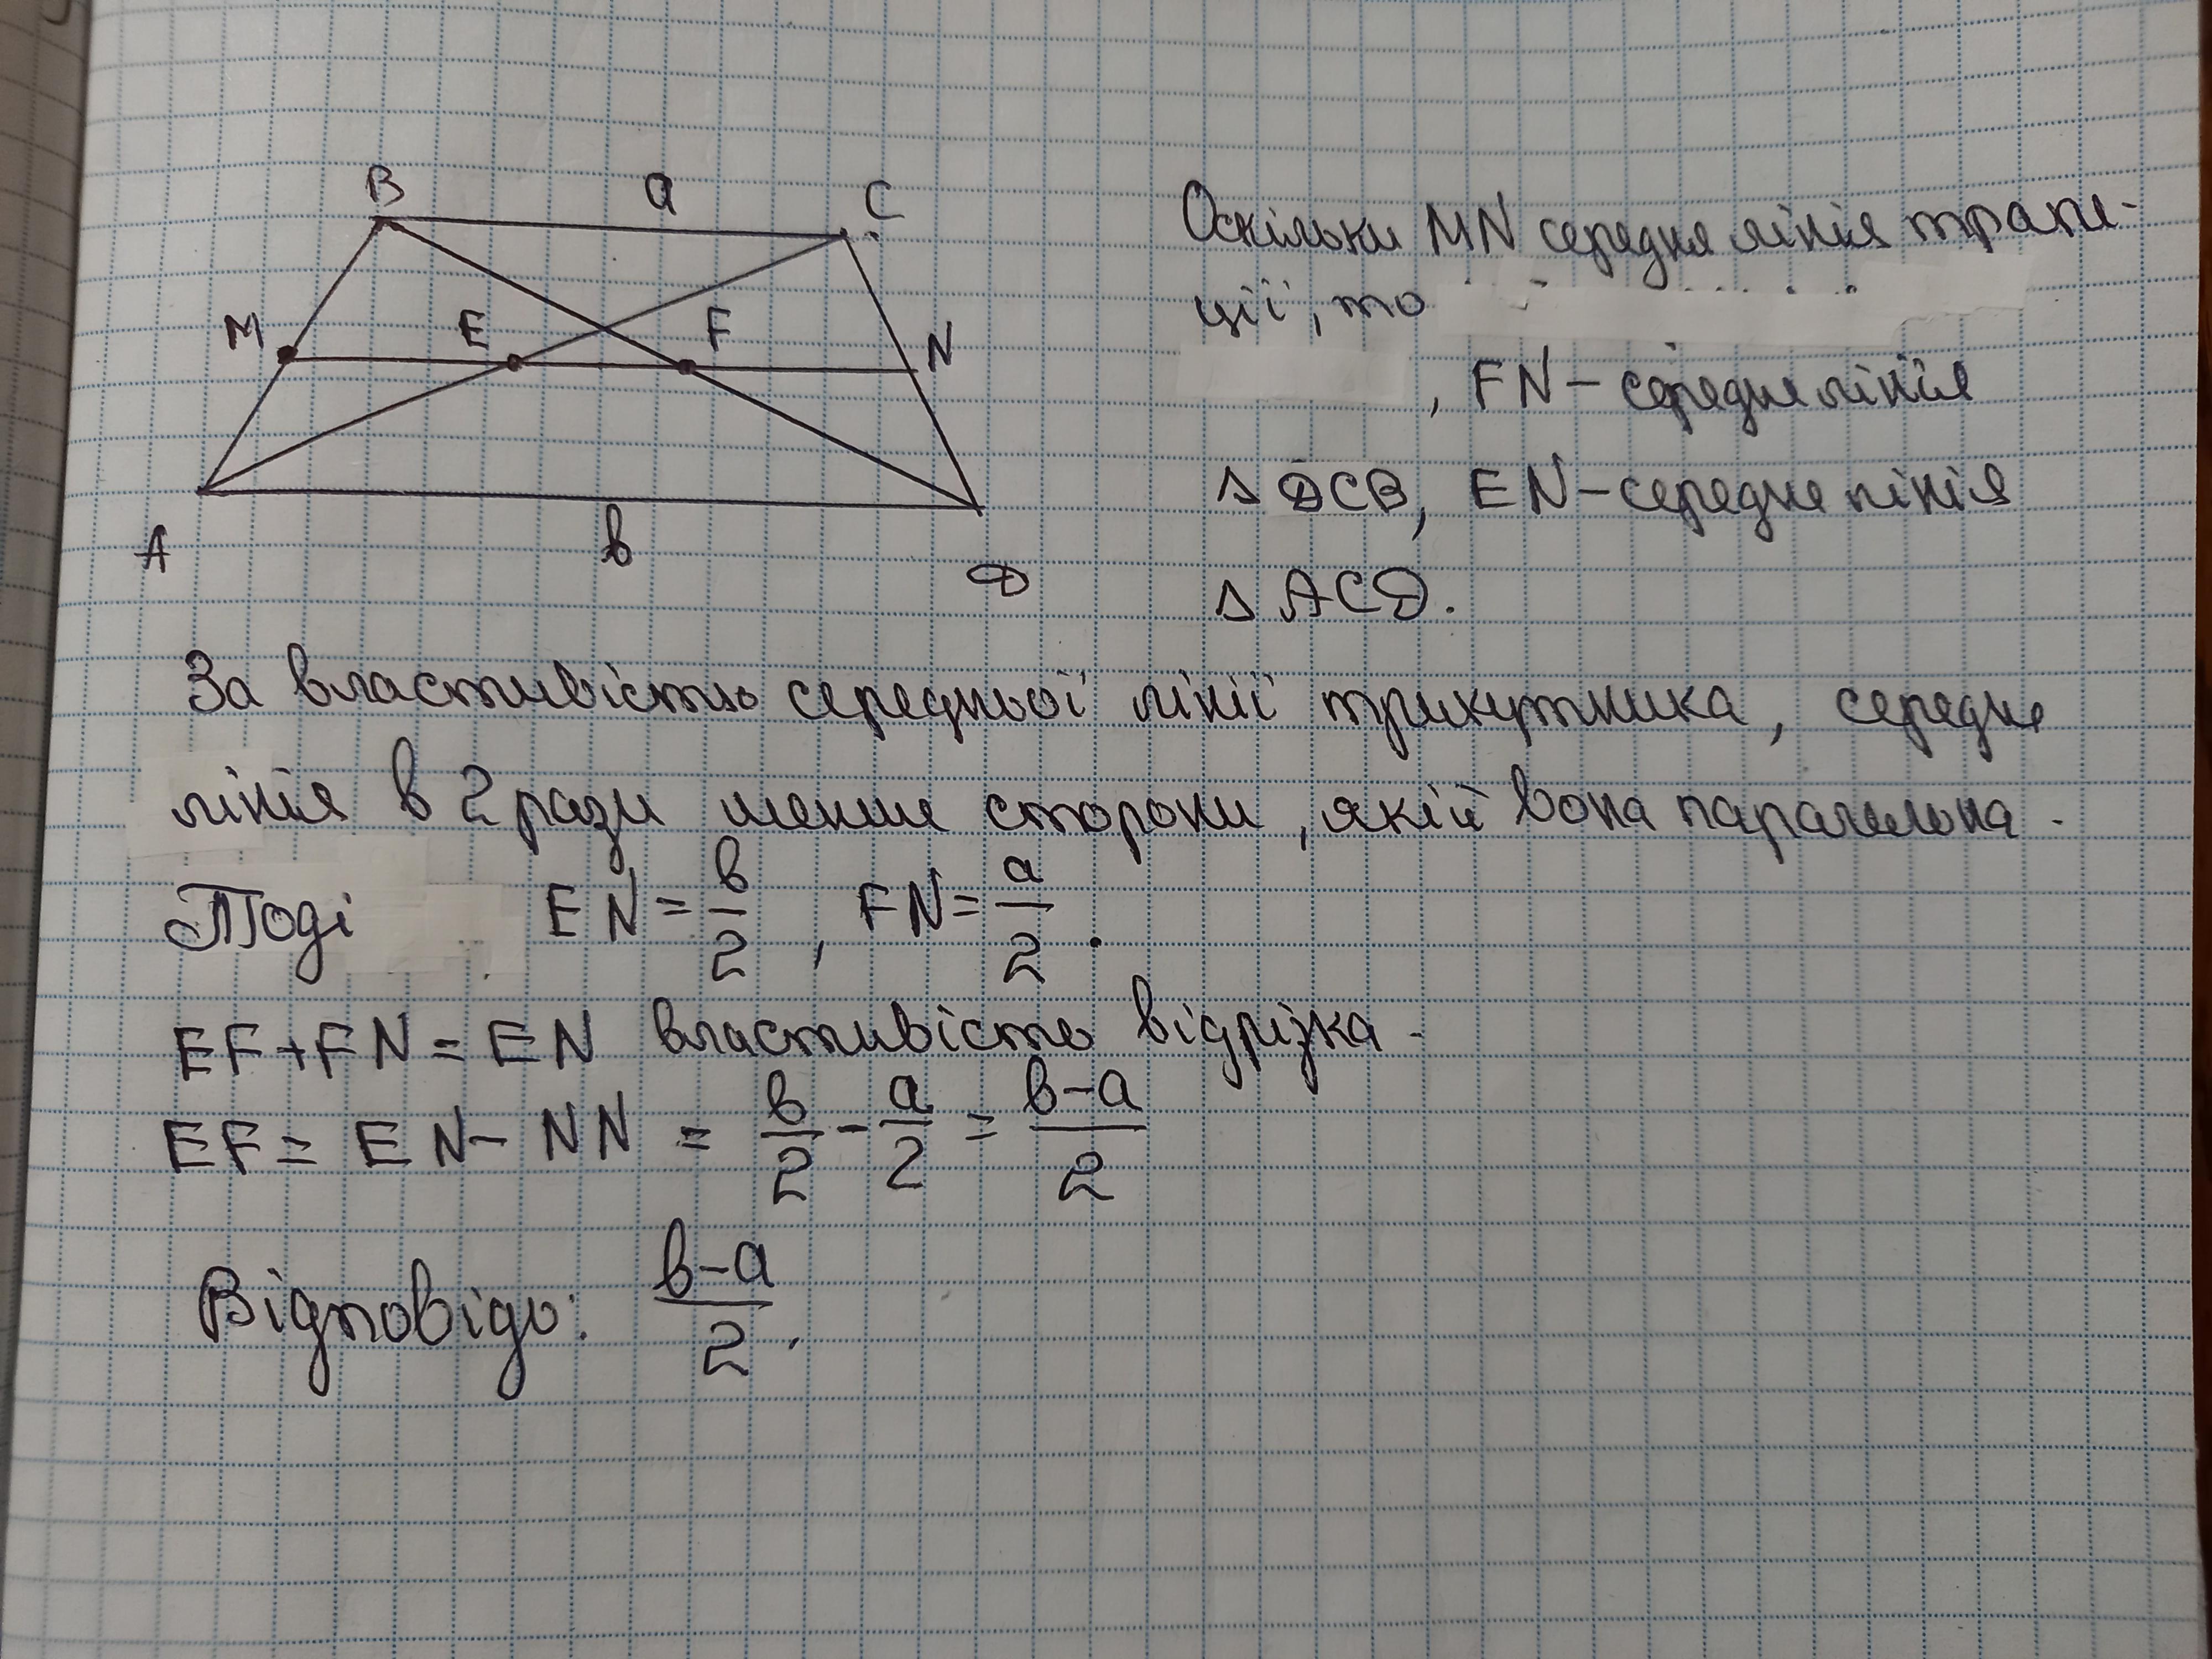 B a C
M E F N
A в D
Оскільки MN середня лінія трапе-
ції, то
, FN – середня лінія
Δ DCB, EN – середня лінія
Δ ACD.
За властивістю середньої лінії трикутника, середня
лінія в 2 рази менша сторони, якій вона паралельна.
Тоді EN = в/2, FN = a/2.
EF + FN = EN властивість відрізка.
EF = EN – NN = в/2 - a/2 = в-a/2
Відповідь: в-a/2.